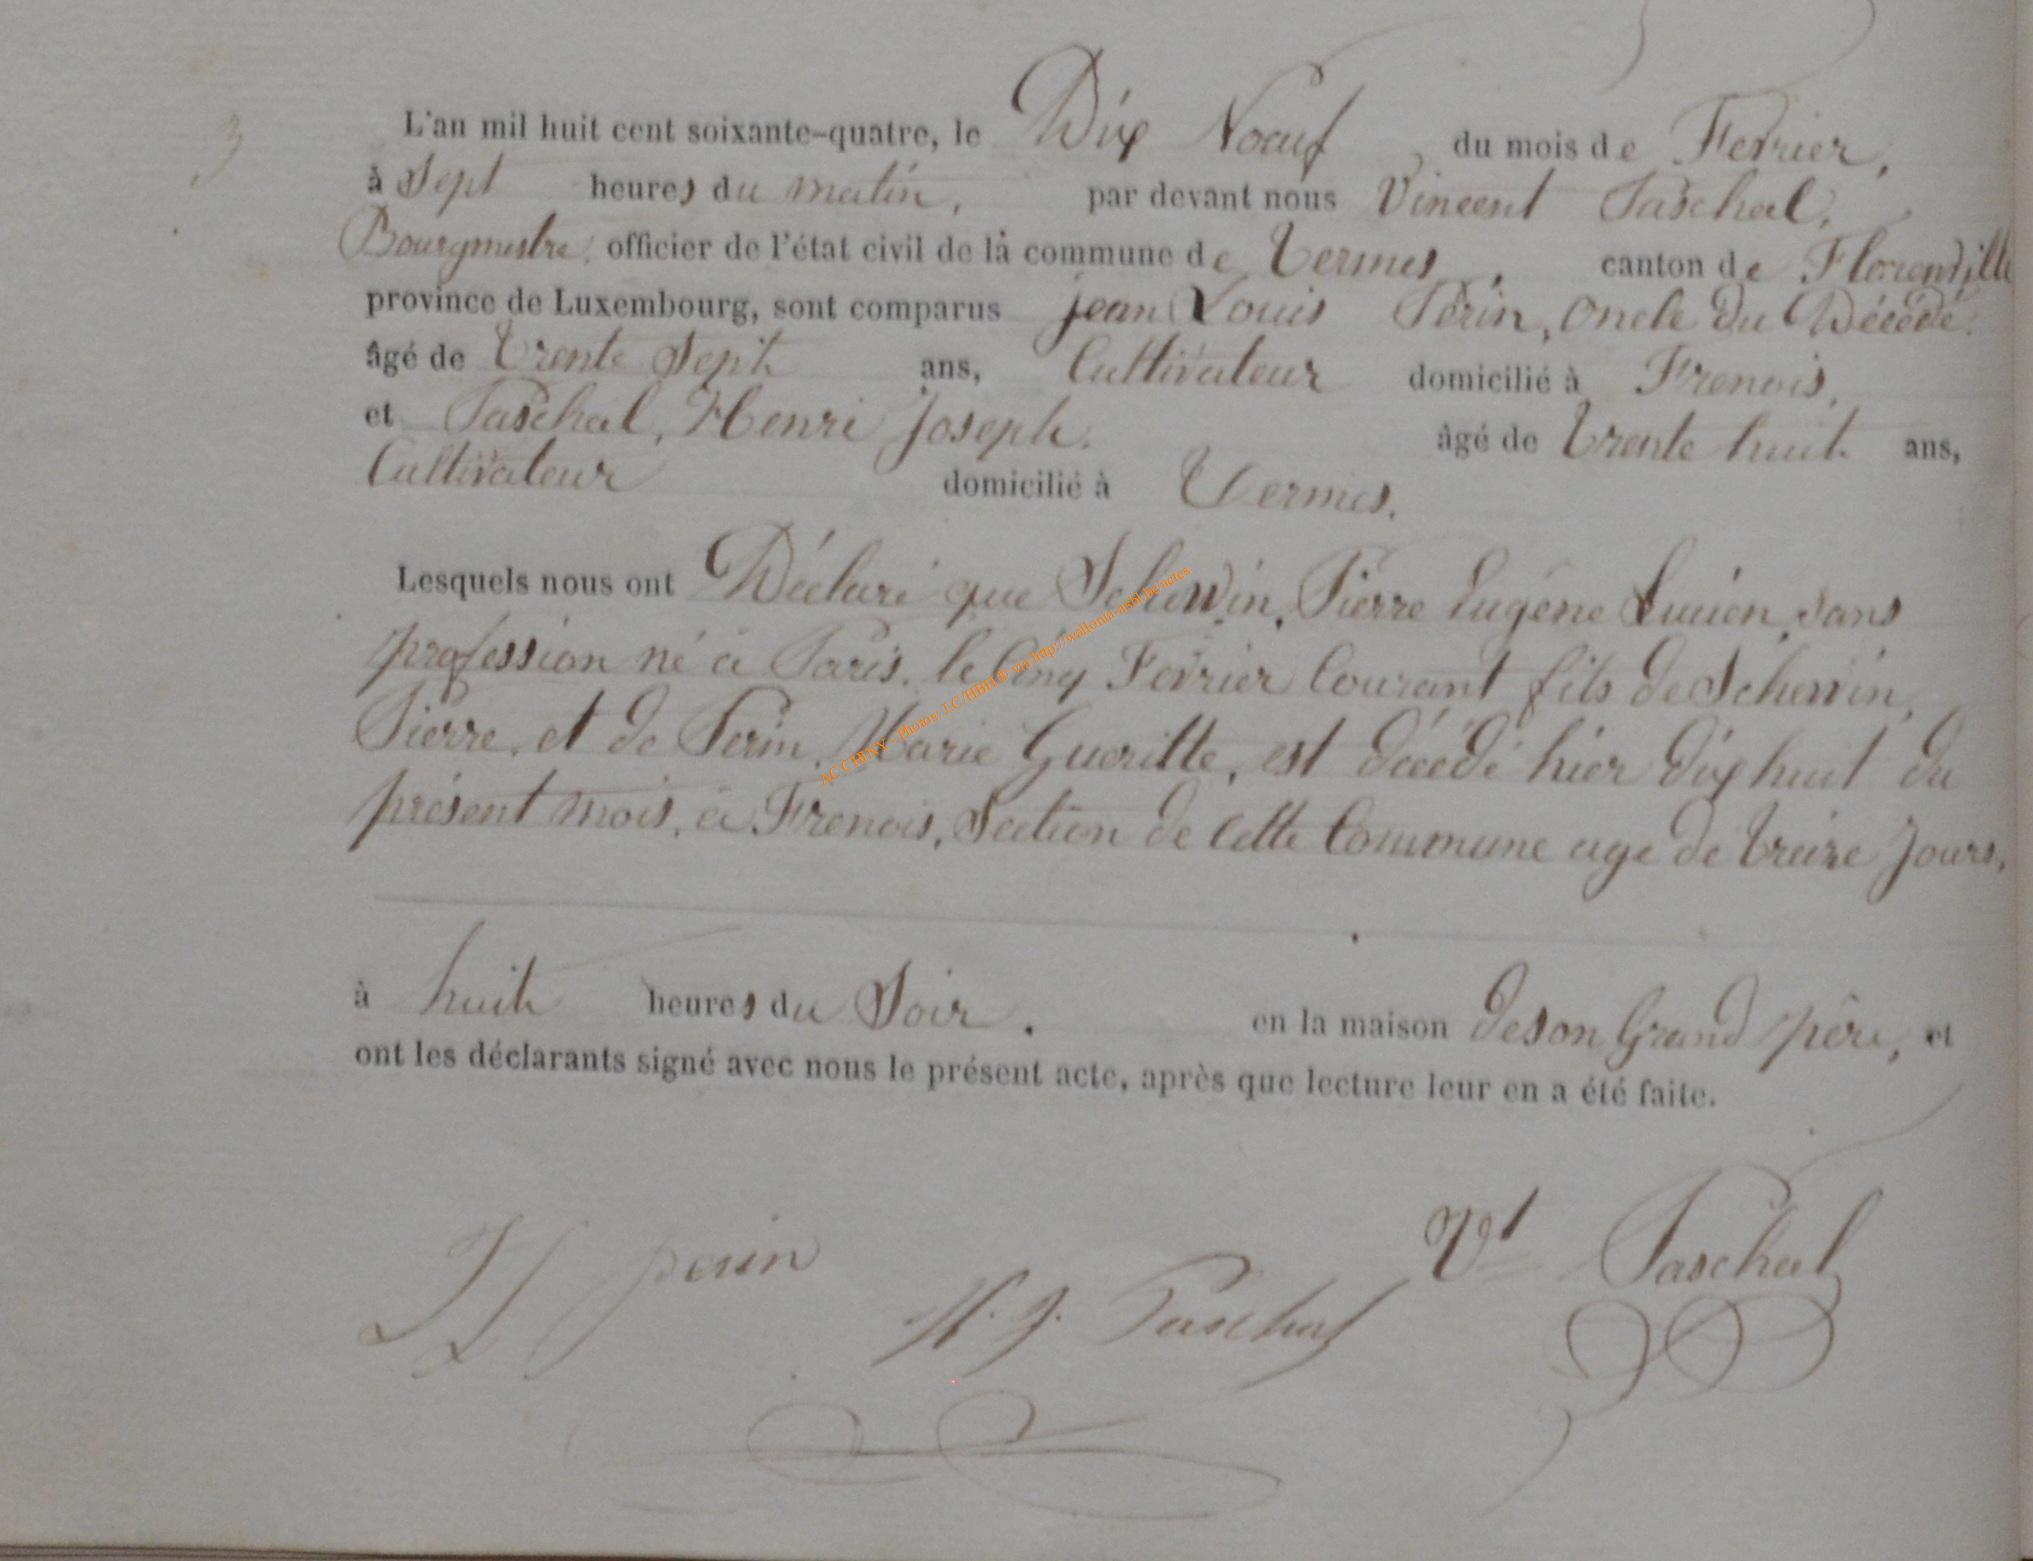 3
L'an mil huit cent soixante-quatre, le Dix Nœuf du mois de Fevrier,
à Sept heures du matin, par devant nous Vincent Paschal,
Bourgmestre, officier de l'état civil de la commune de Termes, canton de Florenville
province de Luxembourg, sont comparus jean Louis Périn, Oncle du Décédé.
âgé de Trente Sept ans, Cultivateur domicilié à Frenois,
et Paschal, Henri joseph. âgé de Trente huit ans,
Cultivateur domicilié à Termes.
Lesquels nous ont Déclaré que Schewin, Pierre Eugène Lucien, sans
profession né à Paris, le Cinq Fevrier Courant fils de Schewin,
Pierre, et de Perin, Marie Gueritte, est décédé hier dix huit du
présent mois, à Frenois, Section de cette Commune age de treize jours,
à huit heures du Soir. en la maison de son Grand père, et
ont les déclarants signé avec nous le présent acte, après que lecture leur en a été faite.
JL perin H. J. Paschal Vt Paschal
AC CHINY - Photos: J.C HBH® via http://wallonia-asbl.be/actes